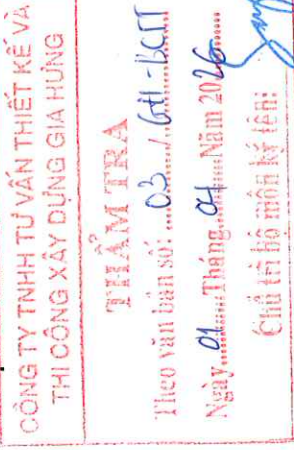 CÔNG TY TNHH TƯ VẤN THIẾT KẾ VÀ
THI CÔNG XÂY DỰNG GIA HƯNG
THẨM TRA
Theo văn bản số: ...03.../GH-BCTT
Ngày...01...Tháng...04...Năm 2026
Chủ trì bộ môn ký tên: